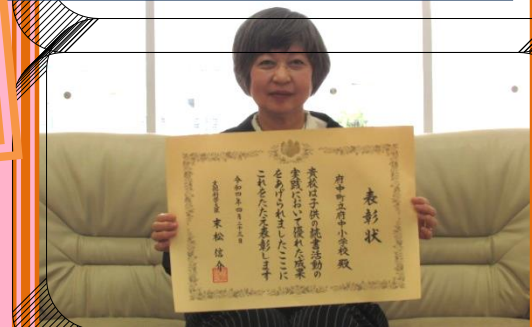 表彰状
府中町立府中小学校 殿
貴校は子供の読書活動の
実践において優れた成果
をあげられましたここに
これをたたえ表彰します
令和四年四月二十三日
文部科学大臣 末松 信介